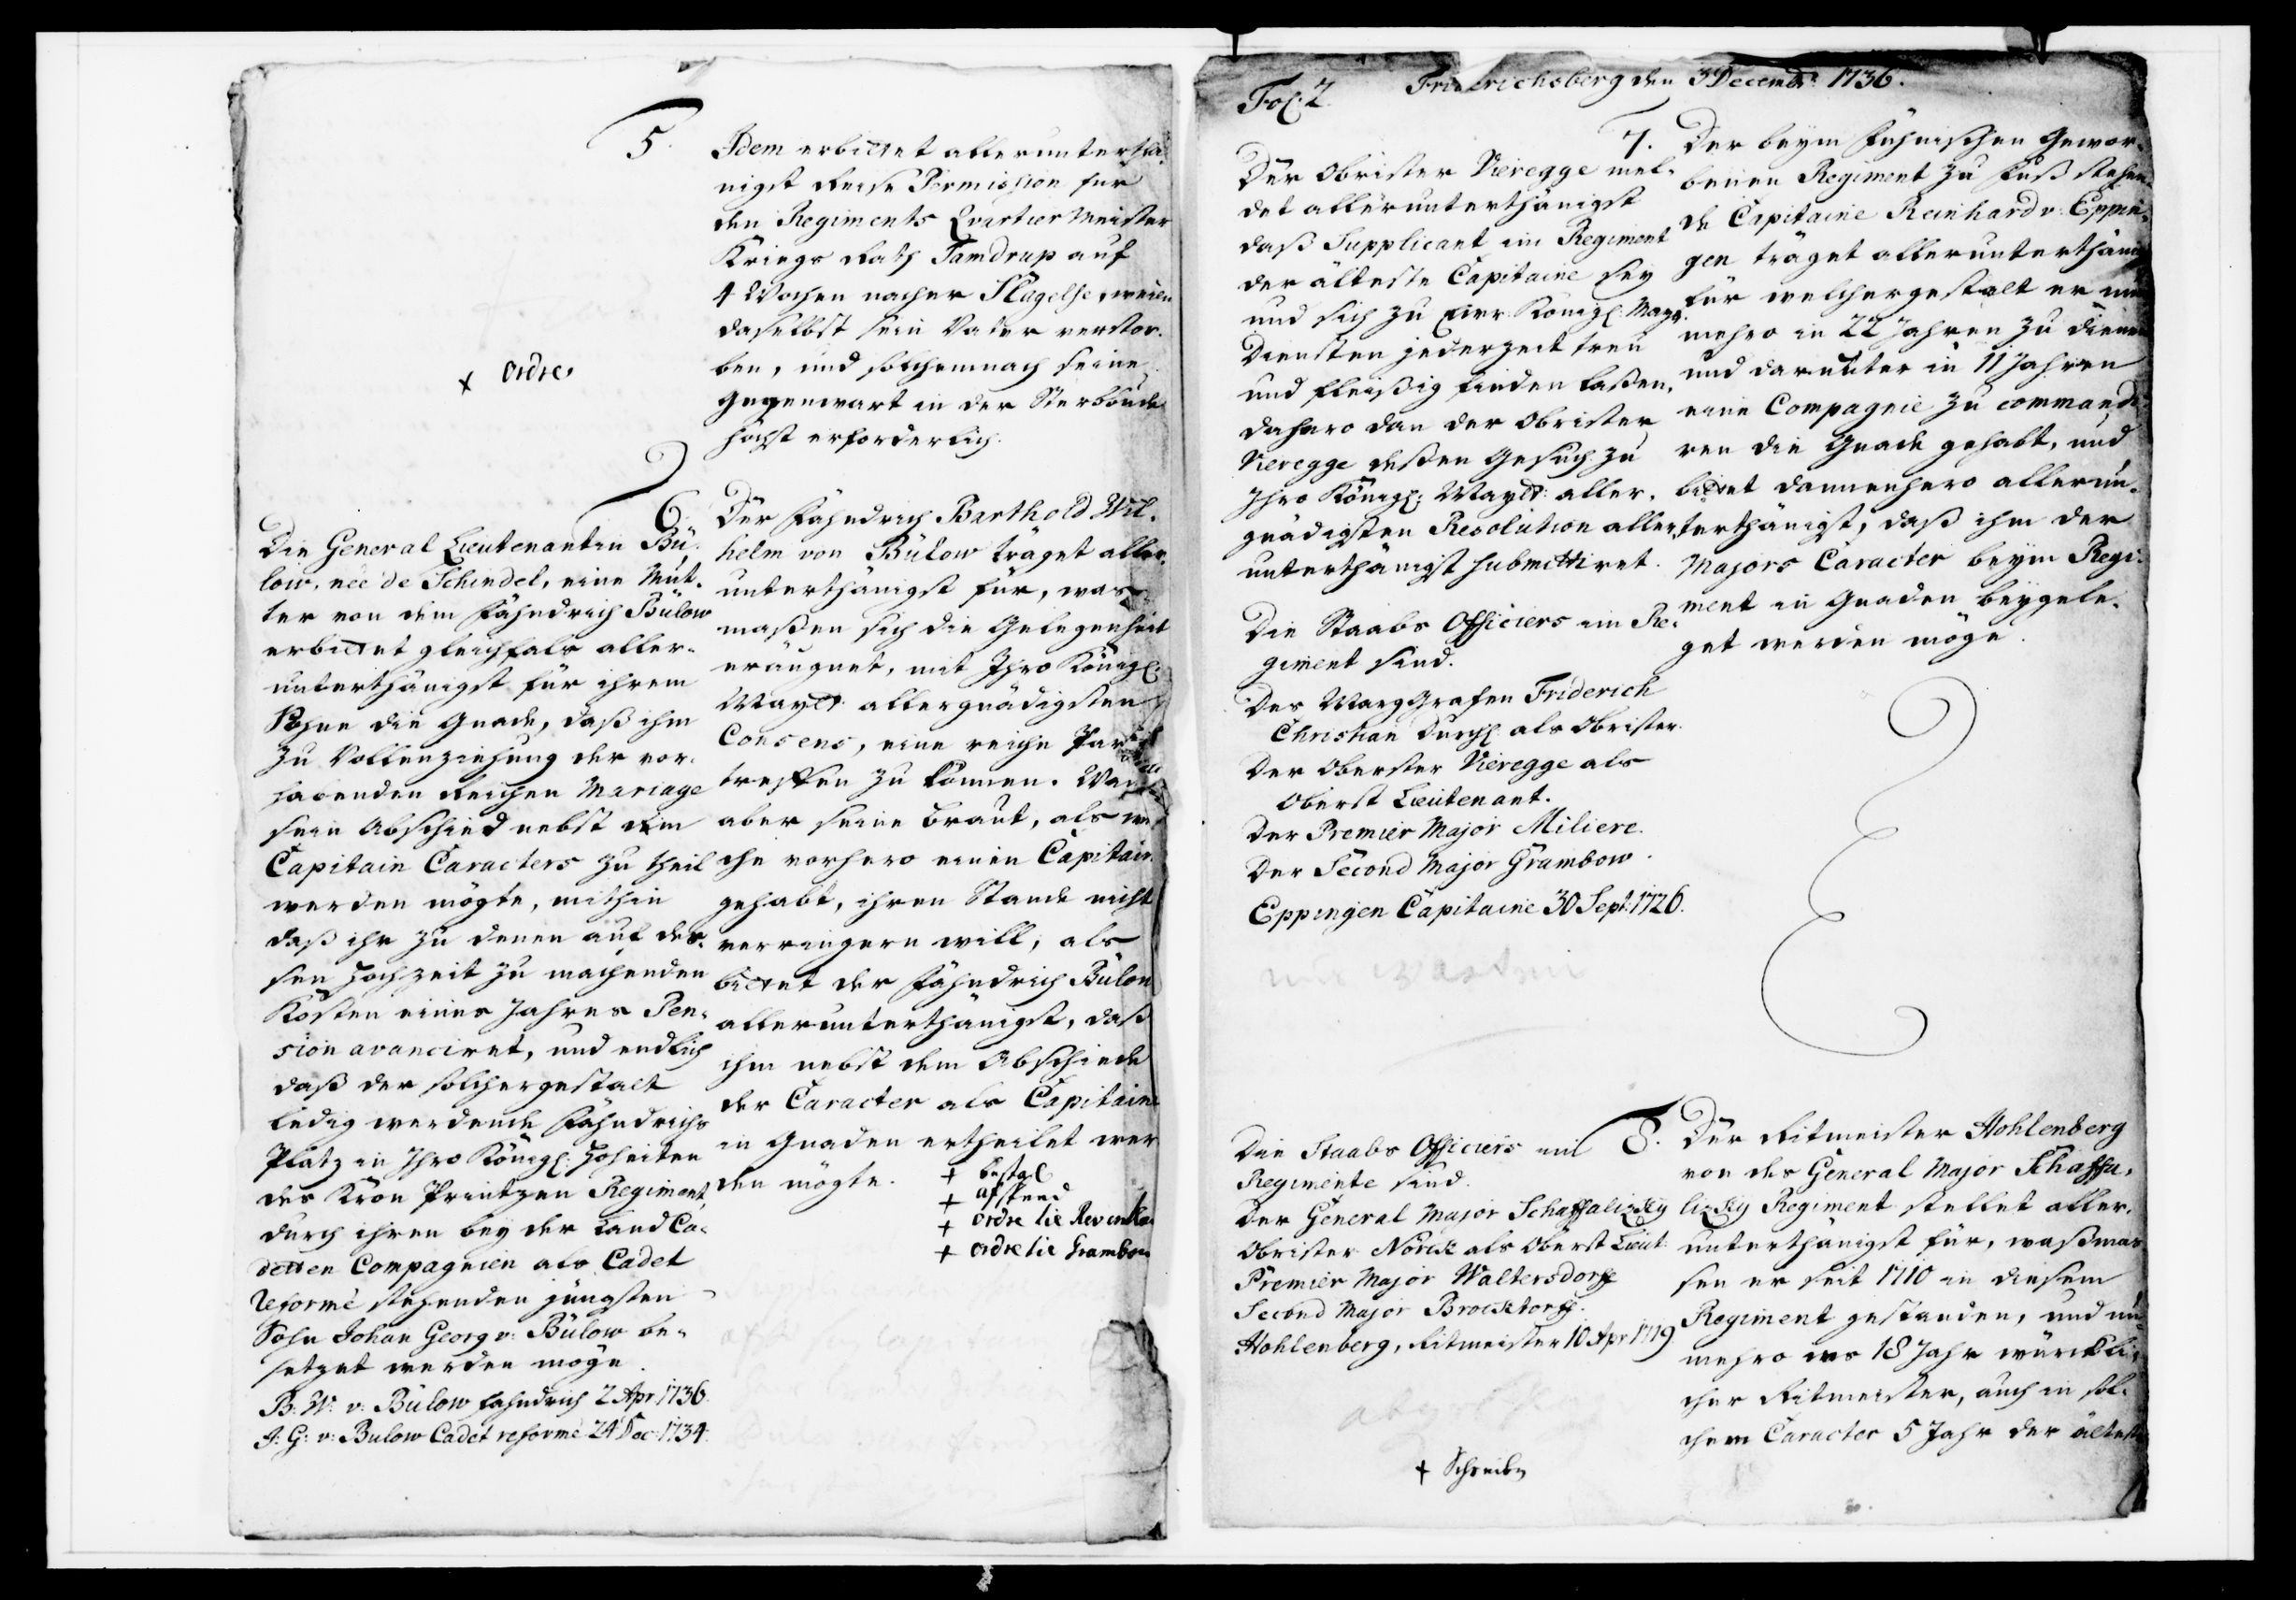 5.
Idem erbittet allerunterthä-
nigst Reise Permission für
den Regiments Qvartier Meister
Kriegs Rath Tamdrup auf
4 Wochen nacher Slagelse, weilen
daselbst sein Vater verstor-
ben, und solchemnach seine
Gegenwart in der Sterbbude
höchst erforderlich.
x ordre
6.
Die General Lieutenantin Bü-
low, née de Schindel, eine Mut-
ter von dem Fähndrich Bülow
erbittet gleichfals aller-
unterthänigst für ihrem
Sohne die Gnade, daß ihm
zu Vollenziehung der vor-
habenden Reichen Mariage
sein Abschied nebst dem
Capitain Caracters zu theil
werden mögte, mithin
daß ihr zu denen auf des-
sen Hochzeit zu machenden
Kosten eines Jahres Pen-
sion avanciret, und endlich
daß der solchergestalt
ledig werdende Fähndrichs
Platz in Ihro Königl: Hoheiten
des Kron Printzen Regiment,
durch ihren bey der Land Ca-
detten Compagnien als Cadet
reformé stehenden jüngsten
Sohn Johan Georg v: Bülow be-
setzet werden möge.
B: W: v: Bülow Fähndrich 2 Apr 1736.
J: G: v: Bulow Cadet reformé 24 Dec: 1734.
Der Fähndrich Barthold Wil-
helm von Bülow träget aller-
unterthänigst für, was
maßen sich die Gelegenheit
eräugnet, mit Ihro Königl:
Mayt: allergnädigsten
Consens, eine reiche
treffen zu können.
aber seine Braut, als wel-
che vorhero einen Capitain
gehabt, ihren Stande nicht
verringern will, als
bittet der Fähndrich Bülow
allerunterthänigst, daß
ihm nebst dem Abschiede
der Caracter als Capitain
in Gnaden ertheilet wer
den mögte.
+ bestal
+ afskeed
+ ordre tie Revenkl
+ ordre tie Grambow
Fol: 2
Friderichsberg den 3 Decembr: 1736.
7.
Der Obrister Vieregge mel-
det allerunterthänigst
daß Supplicant im Regiment
der älteste Capitaine sey
und sich zu Eur Königl: Mayt:
Diensten jederzeit treu
und fleißig finden laßen,
dahero dan der Obrister
Vieregge deßen Gesuch zu
Ihro Königl: Mayt: aller-
gnädigsten Resolution aller-
unterthänigst submittiret.
Die Staabs Officiers im Re-
giment sind.
Des Marggrafen Friderich
Christian Durchl: als Obrister.
Der Oberster Vieregge als
Oberst Lieutenant.
Der Premier Major Miliere.
Der Second Major Grambow.
Eppingen Capitaine 30 Sept: 1726.
Der beym Fühnischen Gewor-
benen Regiment zu Fuß stehen-
de Capitaine Reinhard v: Eppin-
gen träget allerunterthänigst
für welchergestalt er nun
mehro in 22 Jahren zu dienen
und darunter in 11 Jahren
eine Compagnie zu commandi-
ren die Gnade gehabt, und
bittet dannenhero allerun-
terthänigst, daß ihm der
Majors Caracter beym Regi-
ment in Gnaden beygele-
get werden möge.
8.
Die Staabs Officiers im
Regimente sind.
Der General Major Schaffalizky
Obrister Norck als Oberst Lieut:
Premier Major Waltersdorff
Second Major Brocktorff.
Hohlenberg, Ritmeister 10 Apr 1719
+ Schreiben
Der Ritmeister Hohlenberg
von des General Major Schaffa-
lizky Regiment stellet aller-
unterthänigst für, waßmas-
sen er seit 1710 in diesem
Regiment gestanden, und nun-
mehro ins 18 Jahr würckli-
cher Ritmeister, auch in sol-
chem Caracter 5 Jahr der älteste